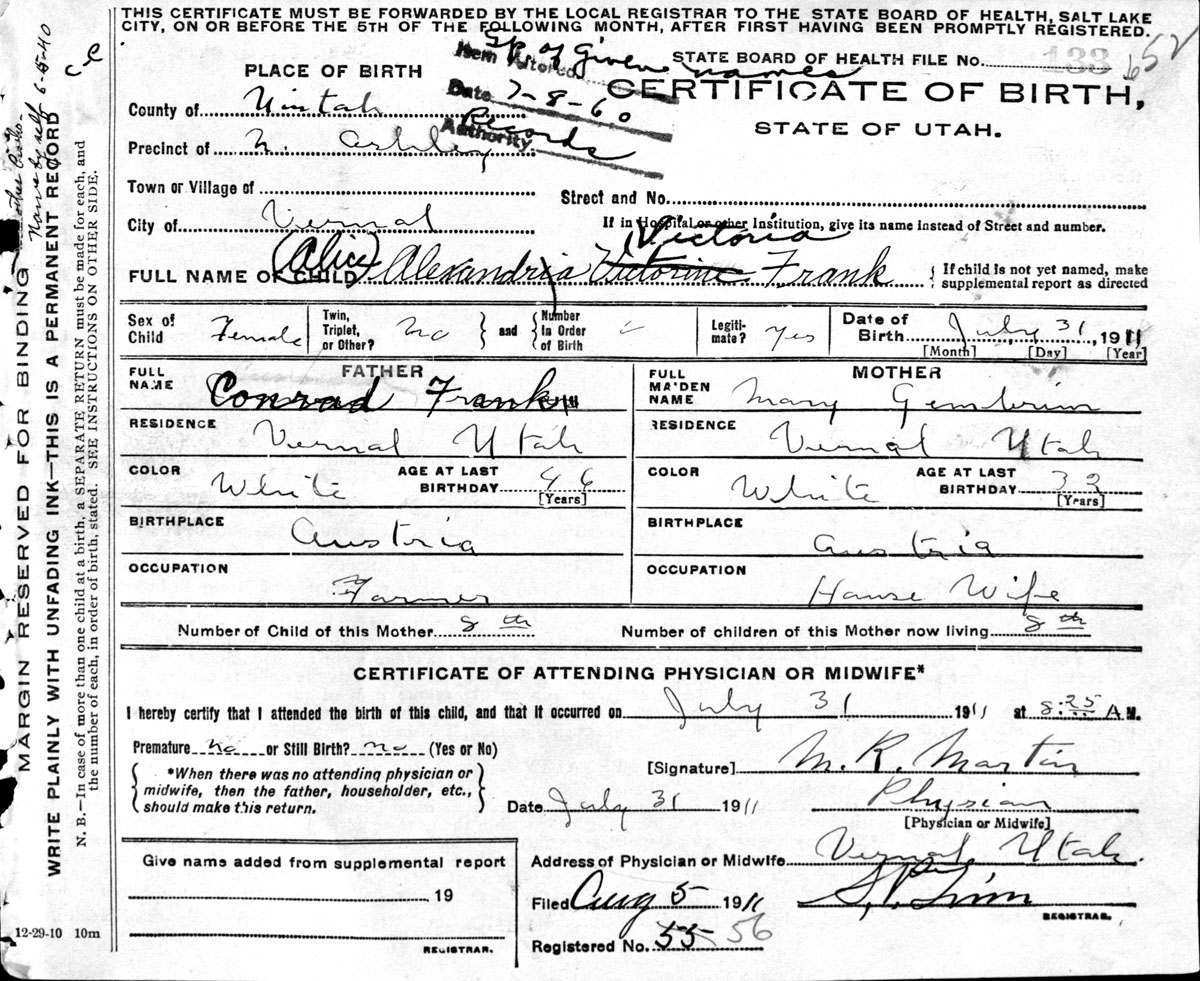 THIS CERTIFICATE MUST BE FORWARDED BY THE LOCAL REGISTRAR TO THE STATE BOARD OF HEALTH, SALT LAKE
CITY, ON OR BEFORE THE 5TH OF THE FOLLOWING MONTH, AFTER FIRST HAVING BEEN PROMPTLY REGISTERED.
Item Altered Sp. of Given names
Date 7-8-60
Authority Records
STATE BOARD OF HEALTH FILE No. 133 652
PLACE OF BIRTH
CERTIFICATE OF BIRTH,
STATE OF UTAH.
County of Uintah
Precinct of N. Ashley
Town or Village of
Street and No.
City of Vernal
If in Hospital or other Institution, give its name instead of Street and number.
Victoria
FULL NAME OF CHILD (Alice) Alexandria Victorine Frank
If child is not yet named, make
supplemental report as directed
Sex of Child Female
Twin, Triplet, or Other? No
and Number In Order of Birth
Legitimate? Yes
Date of Birth July 31, 1911
[Month] [Day] [Year]
FATHER
FULL NAME Conrad Frank
RESIDENCE Vernal Utah
COLOR White
AGE AT LAST BIRTHDAY 46
[Years]
BIRTHPLACE Austria
OCCUPATION Farmer
MOTHER
FULL MAIDEN NAME Mary
RESIDENCE Vernal Utah
COLOR White
AGE AT LAST BIRTHDAY 33
[Years]
BIRTHPLACE Austria
OCCUPATION House Wife
Number of Child of this Mother 8th
Number of children of this Mother now living 8th
CERTIFICATE OF ATTENDING PHYSICIAN OR MIDWIFE*
I hereby certify that I attended the birth of this child, and that it occurred on July 31 1911 at 8:25 A.M.
Premature No or Still Birth? No (Yes or No)
*When there was no attending physician or
midwife, then the father, householder, etc.,
should make this return.
[Signature] M. R. Martin
Date July 31 1911
Physian
[Physician or Midwife]
Give name added from supplemental report
19
REGISTRAR.
Address of Physician or Midwife Vernal, Utah.
Filed Aug 5 1911
REGISTRAR.
Registered No. 55 56
MARGIN RESERVED FOR BINDING
WRITE PLAINLY WITH UNFADING INK—THIS IS A PERMANENT RECORD
N. B.—In case of more than one child at a birth, a SEPARATE RETURN must be made for each, and
the number of each, in order of birth, stated. SEE INSTRUCTIONS ON OTHER SIDE.
Name by self 6-5-40
12-29-10 10m